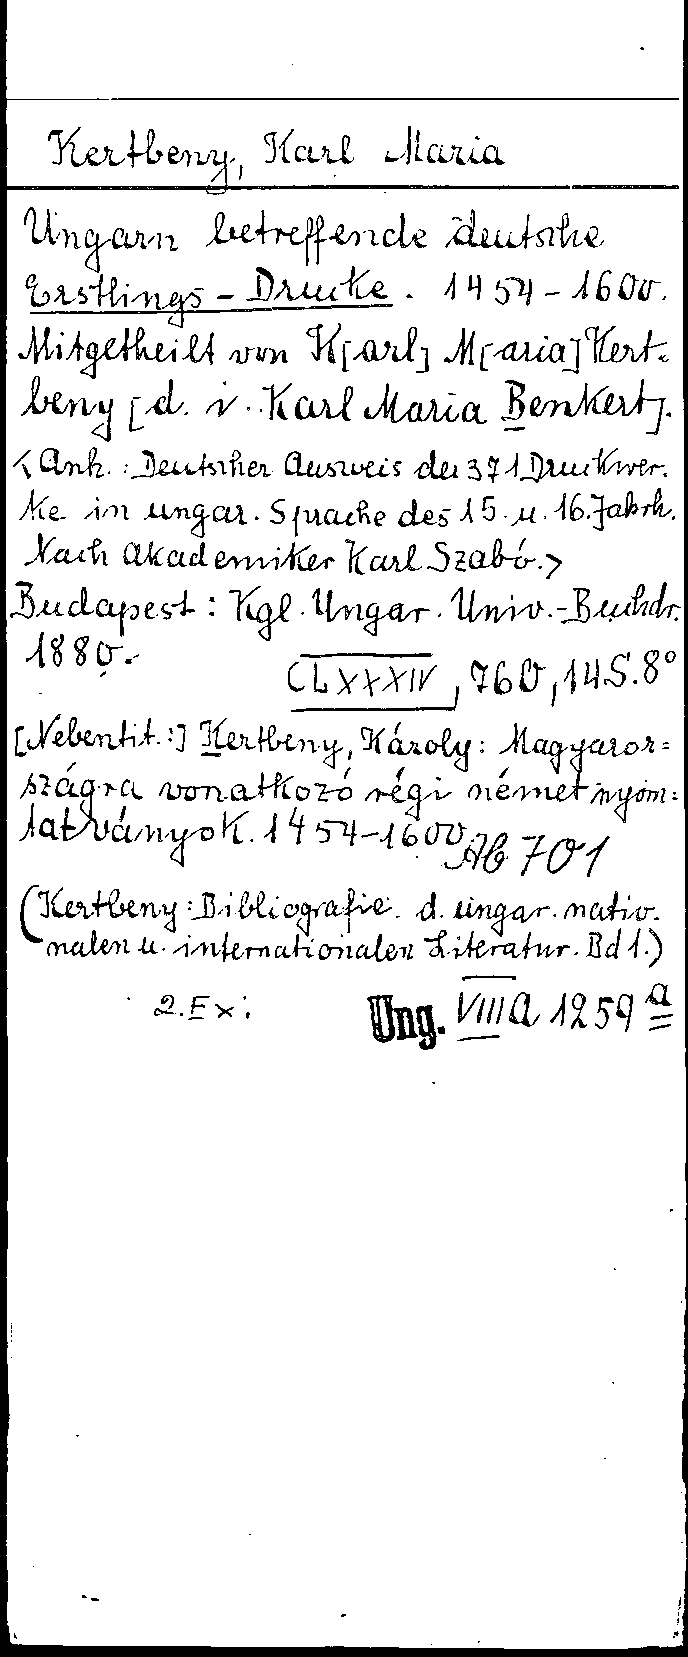 Kertbeny, Karl Maria
Ungarn betreffende deutsche
Erstlings-Drucke. 1454-1600.
Mitgetheilt von K[arl] M[aria] Kert-
beny [d. i. Karl Maria Benkert].
<Anh.: Deutscher Ausweis der 371 Druckwer-
ke in ungar. Sprache des 15. u. 16. Jahrh.
Nach Akademiker Karl Szabó.>
Budapest: Kgl. Ungar. Univ.-Buchdr.
1880.
CLXXXIV, 760, 14 S. 8°
[Nebentit.:] Kertbeny, Károly: Magyaror=
szágra vonatkozó régi német nyom=
tatványok. 1454-1600
Ab 701
(Kertbeny: Bibliografie d. ungar. natio-
nalen u. internationalen Literatur. Bd 1.)
2. Ex:
Ung. VIII A 1259 a